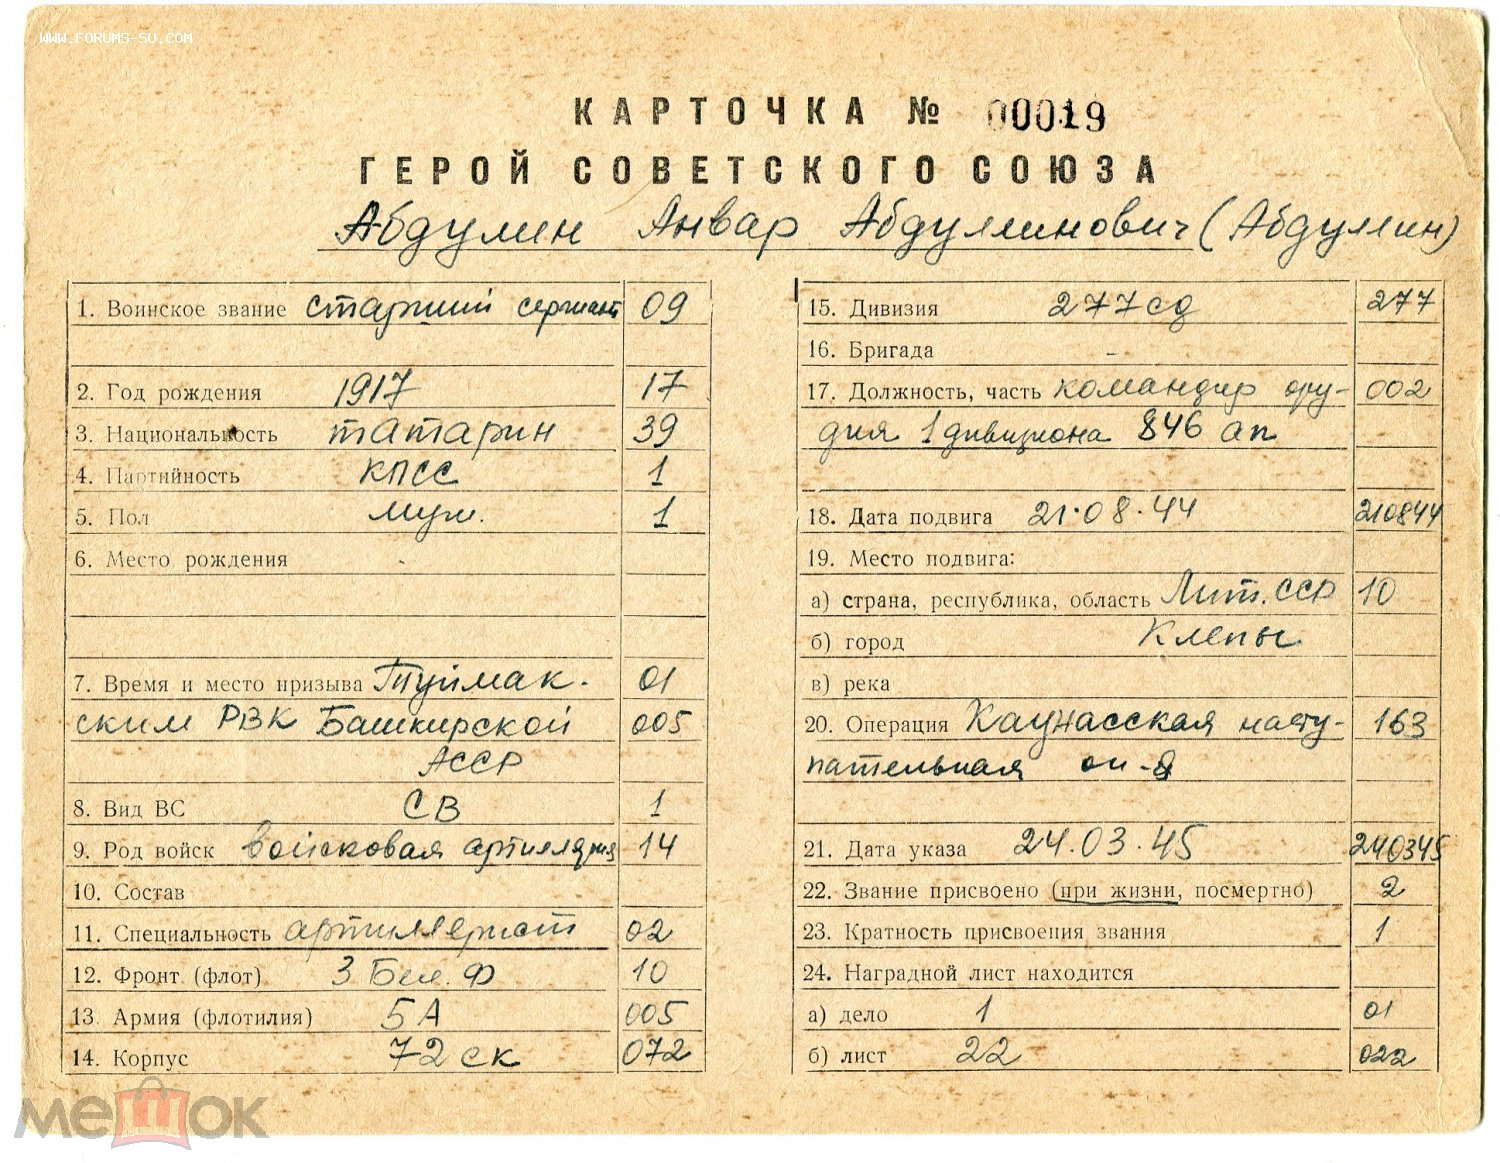 WWW.FORUMS-SU.COM
КАРТОЧКА № 00019
ГЕРОЙ СОВЕТСКОГО СОЮЗА
Абдулин Анвар Абдуллинович (Абдуллин)
1. Воинское звание старший сержант 09
2. Год рождения 1917 17
3. Национальность татарин 39
4. Партийность КПСС 1
5. Пол муж. 1
6. Место рождения
7. Время и место призыва Туймак- 01
ским РВК Башкирской 005
АССР
8. Вид ВС СВ 1
9. Род войск войсковая артиллерия 14
10. Состав
11. Специальность артиллерист 02
12. Фронт (флот) 3 Бел. Ф 10
13. Армия (флотилия) 5А 005
14. Корпус 72 ск 072
15. Дивизия 277 сд 277
16. Бригада -
17. Должность, часть командир ору- 002
дия 1 дивизиона 846 ап
18. Дата подвига 21.08.44 210844
19. Место подвига:
а) страна, республика, область Лит. ССР 10
б) город Клепы
в) река
20. Операция Каунасская насту- 163
пательная оп-я
21. Дата указа 24.03.45 240345
22. Звание присвоено (при жизни, посмертно) 2
23. Кратность присвоения звания 1
24. Наградной лист находится
а) дело 1 01
б) лист 22 022
мешок